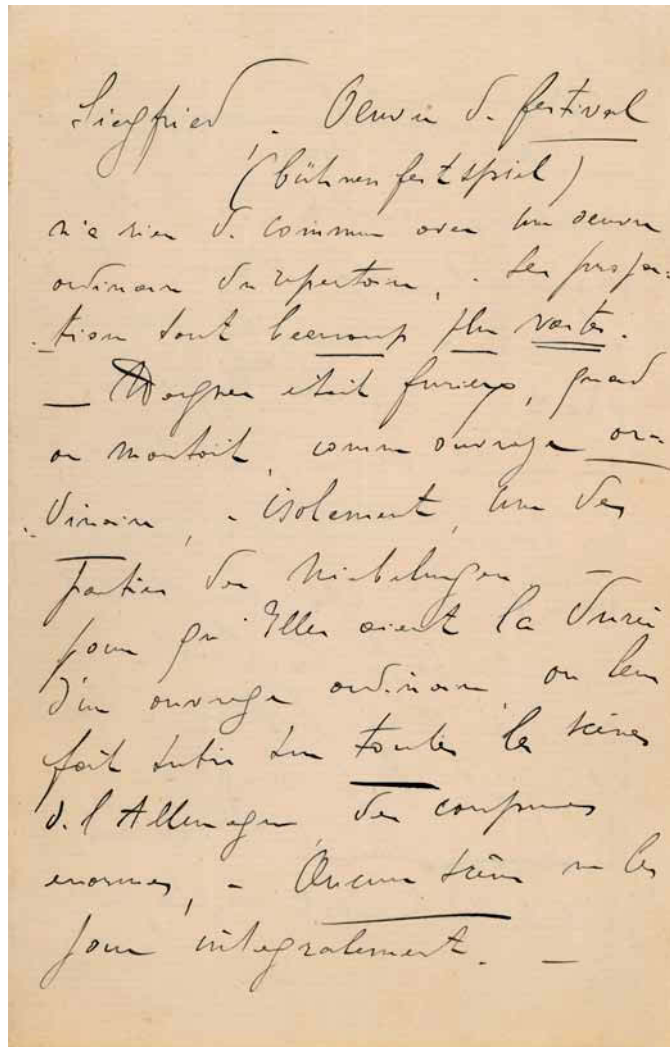 Siegfried, - Oeuvre de festival
(bühnenfestspiel)
n'a rien de commun avec une oeuvre
ordinaire du repertoire, - Ses propor-
-tions sont beaucoup plus vastes.
— Wagner était furieux, quand
on montait, comme ouvrage or-
-dinaire, - isolement, une des
parties des Niebelungen. —
pour qu'Elles aient la durée
d'un ouvrage ordinaire, on leur
fait subir sur toutes les scènes
de l'Allemagne, des coupures
enormes, - Aucune scène ne les
joue intégralement. —